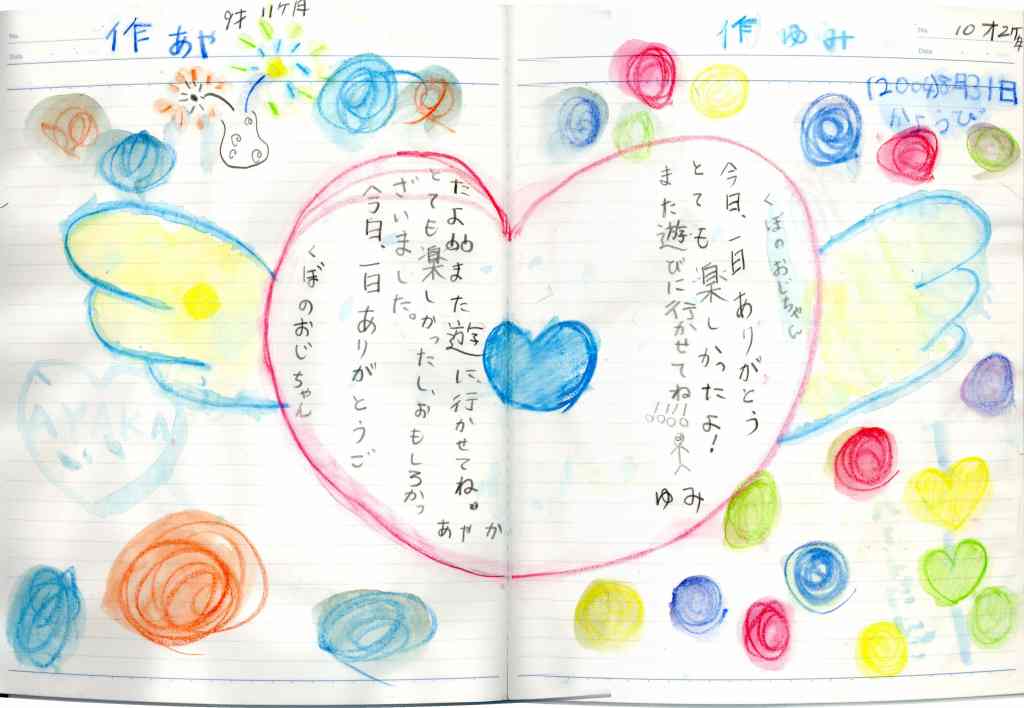 作 ゆみ
10才2ケ月
8月31日
かようび
くぼのおじちゃん
今日、一日ありがとう
とても楽しかったよ!
また遊びに行かせてね!!!!
ゆみ
作 あや
9才 11ケ月
くぼのおじちゃん
今日、一日ありがとうご
ざいました。
とても楽しかったし、おもしろかっ
たよ。また遊に、行かせてね。
あやか
AYAKA
No.
Date
No.
Date